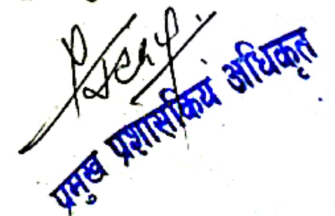 प्रमुख प्रशासकिय अधिकृत